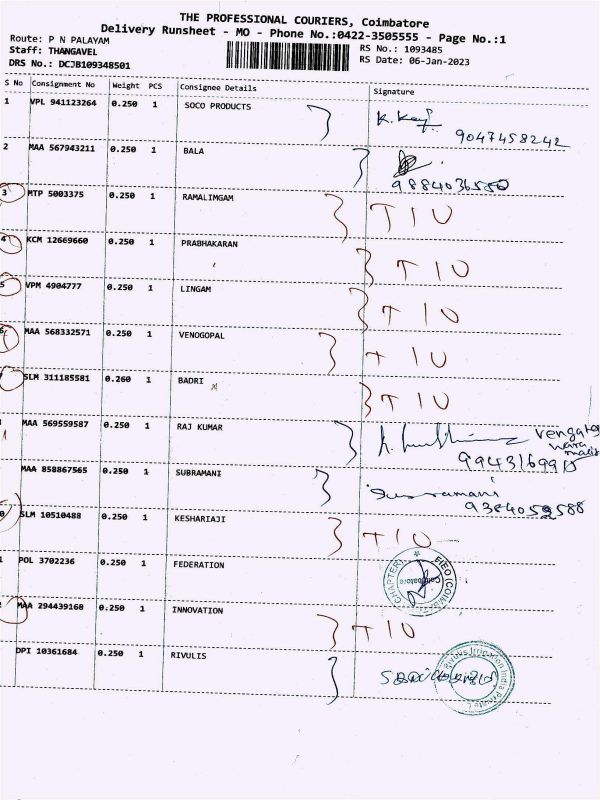 THE PROFESSIONAL COURIERS, Coimbatore
Delivery Runsheet - MO - Phone No.:0422-3505555 - Page No.:1
Route: P N PALAYAM
RS No.: 1093485
Staff: THANGAVEL
RS Date: 06-Jan-2023
DRS No.: DCJB109348501
S No Consignment No Weight PCS Consignee Details Signature
1 VPL 941123264 0.250 1 SOCO PRODUCTS
9047458242
2 MAA 567943211 0.250 1 BALA
9884036580
3 MTP 5003375 0.250 1 RAMALIMGAM T I U
4 KCM 12669660 0.250 1 PRABHAKARAN T I U
5 VPM 4904777 0.250 1 LINGAM T I U
6 MAA 568332571 0.250 1 VENOGOPAL T I U
SLM 311185581 0.260 1 BADRI T I U
MAA 569559587 0.250 1 RAJ KUMAR
MAA 858867565 0.250 1 SUBRAMANI Subramani
9384052588
0 SLM 10510488 0.250 1 KESHARIAJI T I U
1 POL 3702236 0.250 1 FEDERATION
FIEO (COIMBATORE CHAPTER)
Coimbatore
2 MAA 294439168 0.250 1 INNOVATION T I U
DPI 10361684 0.250 1 RIVULIS
Rivulis Irrigation India Private L